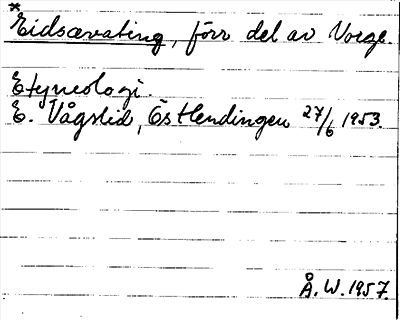 *
Eidsævating, förr del av Norge.
Etymologi.
E. Vågslid, Östlendingen 27/6 1953.
Å. W. 1957.